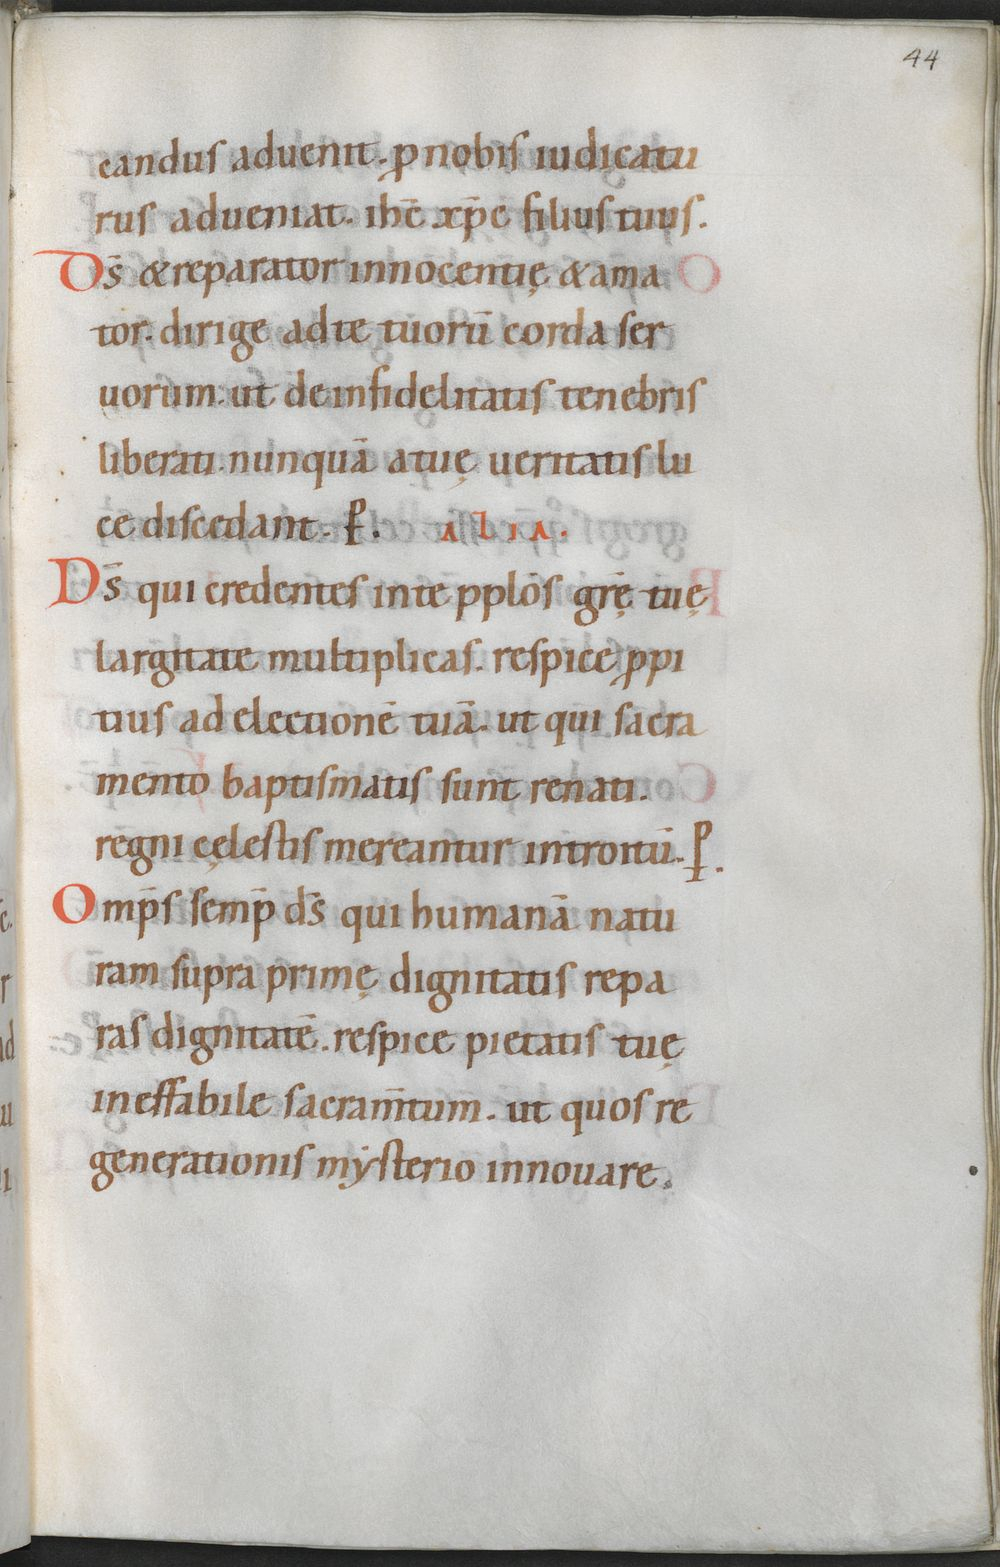 44
candus aduenit. ꝓ nobis iudicatu
rus adueniat. ihē xp̄e filius tuus.
Ds̄ & reparator innocentię & ama
tor. dirige ad te tuorū corda ser
uorum. ut de infidelitatis tenebris
liberati. nunquā a tuę ueritatis lu
ce discedant. P. ALIA.
Ds̄ qui credentes in te pplōs grę̄ tuę
largitate multiplicas. respice ꝓpi
tius ad electionē tuā. ut qui sacra
mento baptismatis sunt renati.
regni cęlestis mereantur introitū. P.
Omp̄s semp̄ ds̄ qui humanā natu
ram supra primę dignitatis repa
ras dignitatē. respice pietatis tuę
ineffabile sacram̄tum. ut quos re
generationis mẏsterio innouare.